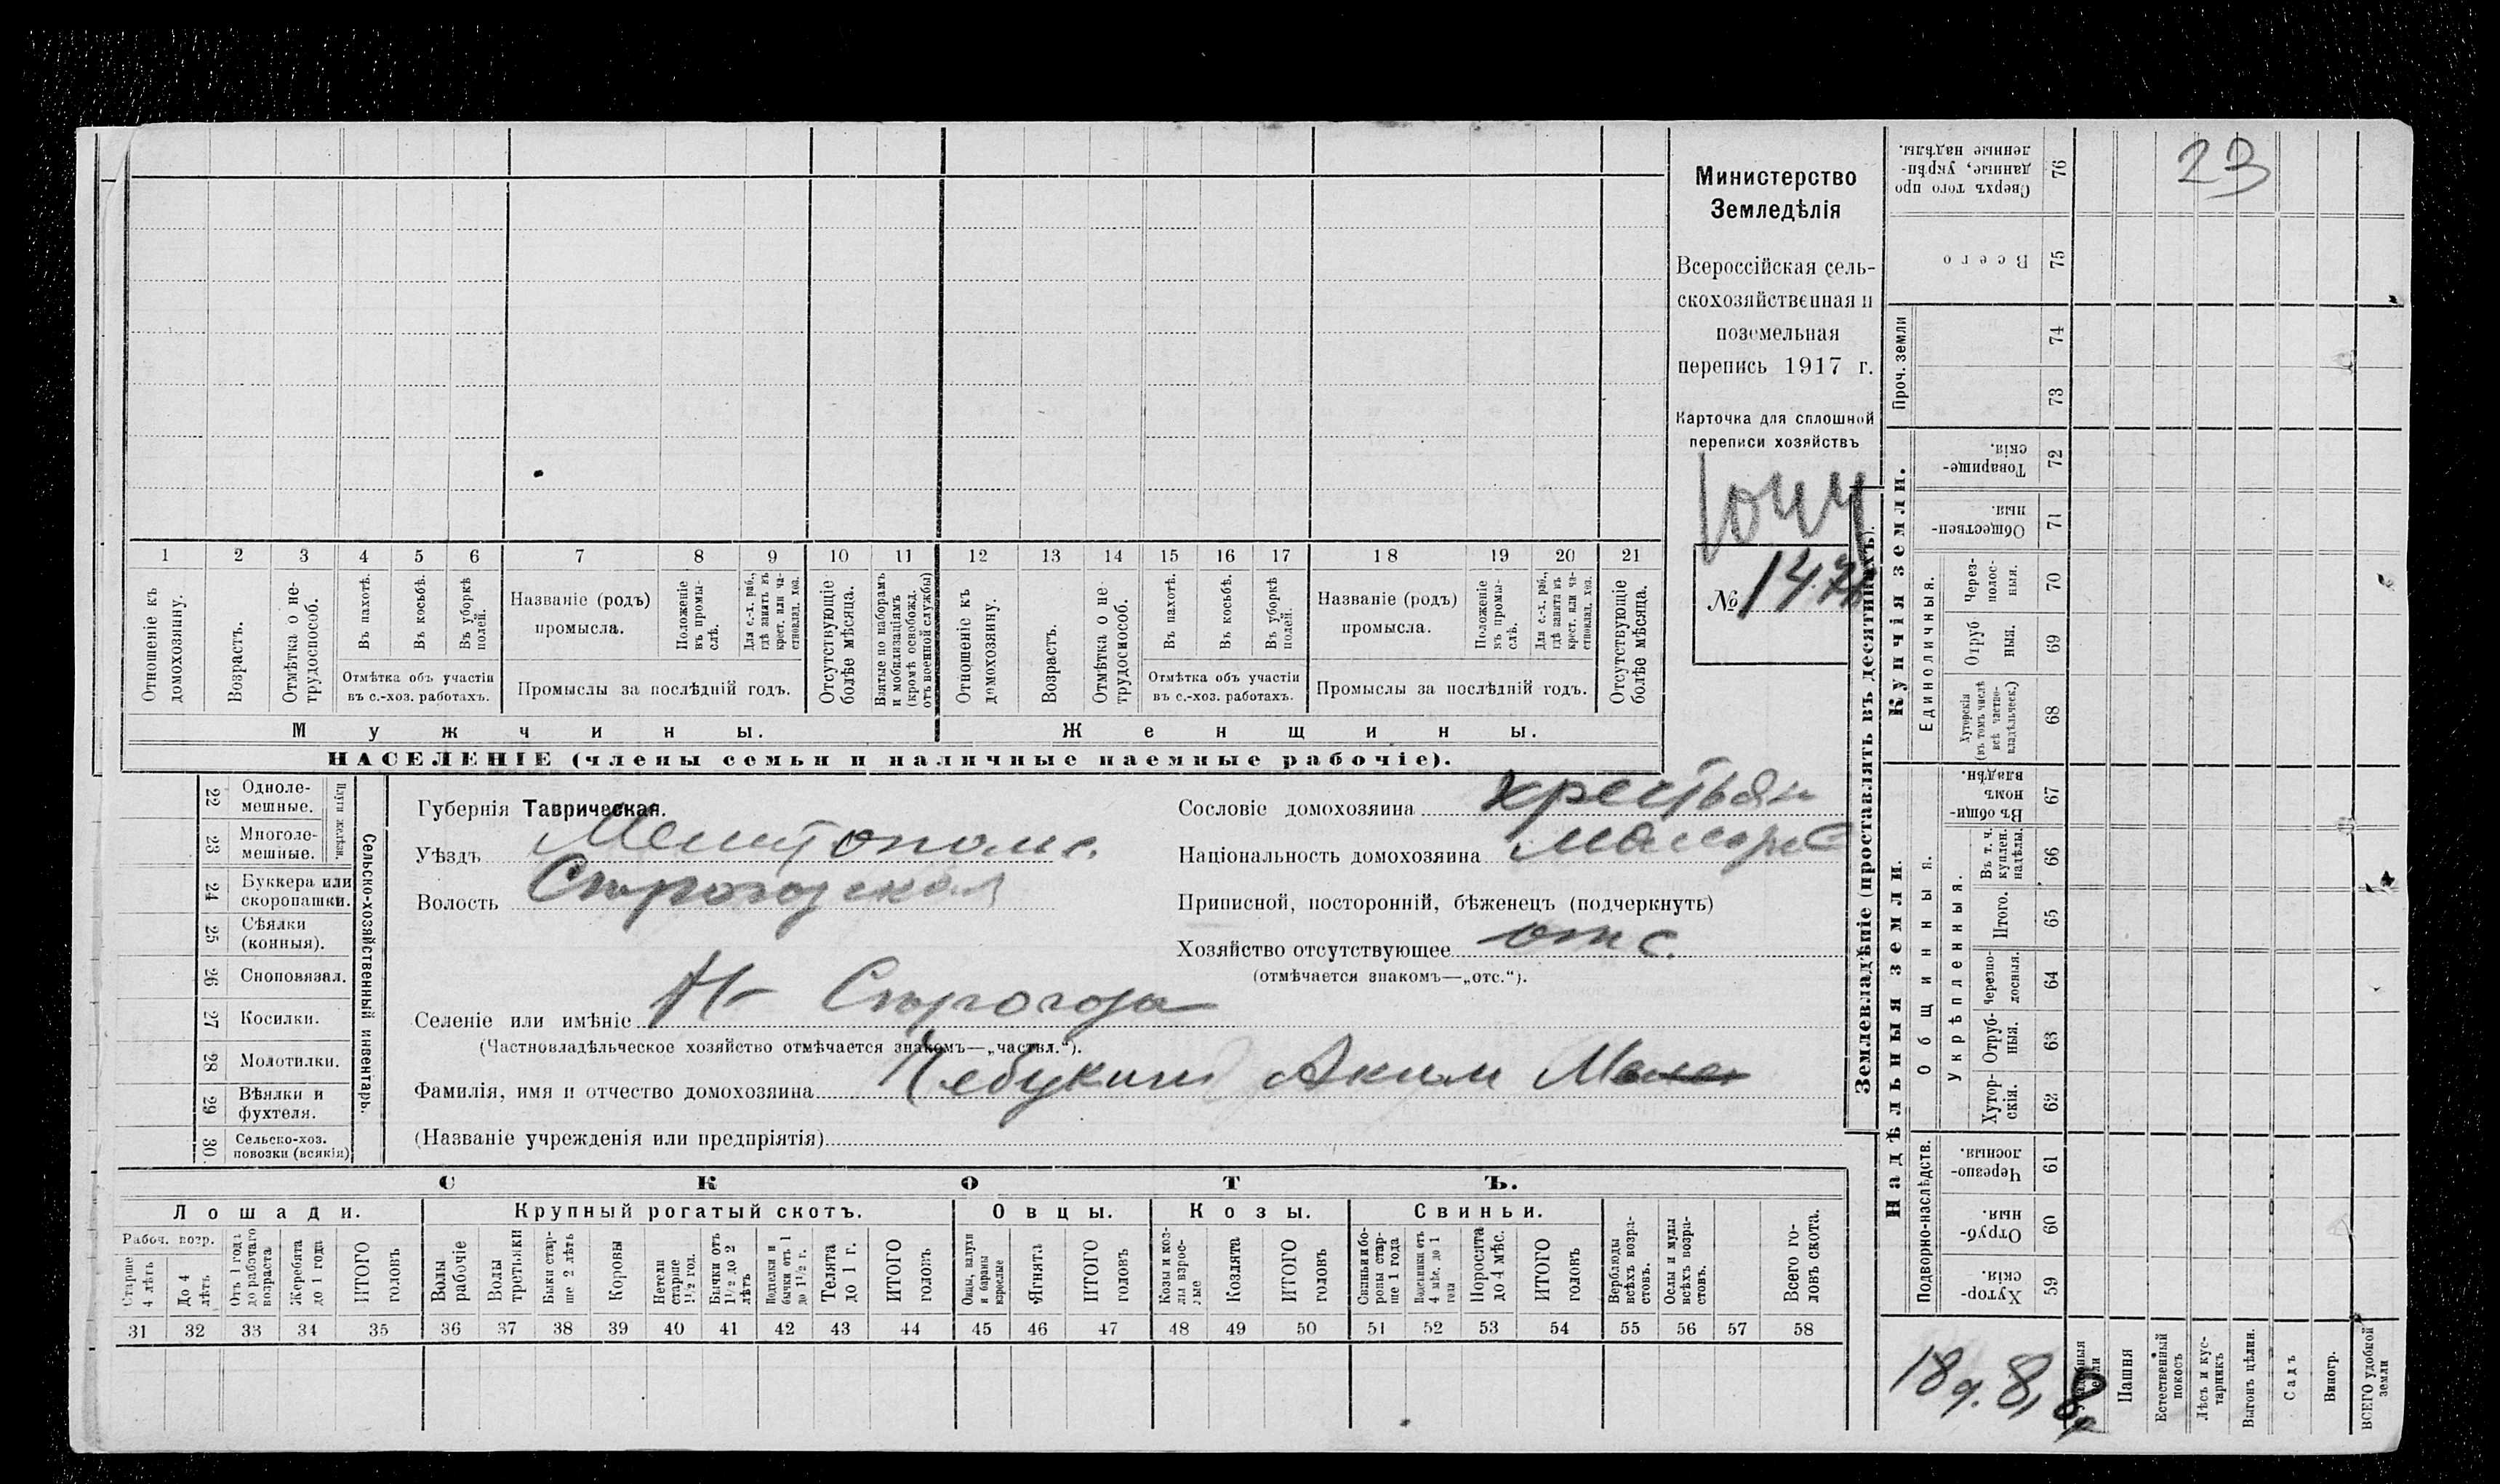 Министерство
Земледѣлія
Всероссійская сель-
скохозяйственная и
поземельная
перепись 1917 г.
Карточка для сплошной
переписи хозяйствъ
№ 147
1 2 3 4 5 6 7 8 9 10 11 12 13 14 15 16 17 18 19 20 21
Отношеніе къ домохозяину.
Возрастъ.
Отмѣтка о не-трудоспособ.
Въ пахотѣ.
Въ косьбѣ.
Въ уборкѣ полей.
Отмѣтка объ участіи
въ с.-хоз. работахъ.
Названіе (родъ)
промысла.
Положеніе въ промы-слѣ.
Для с.-х. раб., гдѣ занятъ въ крест. или ча-стновлад. хоз.
Промыслы за послѣдній годъ.
Отсутствующіе болѣе мѣсяца.
Взятые по наборамъ и мобилизаціямъ (кромѣ освобожд. отъ военной службы)
Отношеніе къ домохозяину.
Возрастъ.
Отмѣтка о не-трудоспособ.
Въ пахотѣ.
Въ косьбѣ.
Въ уборкѣ полей.
Отмѣтка объ участіи
въ с.-хоз. работахъ.
Названіе (родъ)
промысла.
Положеніе въ промы-слѣ.
Для с.-х. раб., гдѣ занята въ крест. или ча-стновлад. хоз.
Промыслы за послѣдній годъ.
Отсутствующіе болѣе мѣсяца.
Мужчины.
Женщины.
НАСЕЛЕНІЕ (члены семьи и наличные наемные рабочіе).
22 Одноле-мешные.
23 Многоле-мешные.
Плуги желѣзн.
24 Буккера или скоропашки.
25 Сѣялки (конныя).
26 Сноповязал.
27 Косилки.
28 Молотилки.
29 Вѣялки и фухтеля.
30. Сельско-хоз. повозки (всякія)
Сельско-хозяйственный инвентарь.
Губернія Таврическая.
Уѣздъ Мелитопольс.
Волость Строгозская
Сословіе домохозяина крестьян
Національность домохозяина малорос
Приписной, посторонній, бѣженецъ (подчеркнуть)
Хозяйство отсутствующее отс.
(отмѣчается знакомъ—„отс.“).
Селеніе или имѣніе Н-
(Частновладѣльческое хозяйство отмѣчается знакомъ—„частвл.“).
Фамилія, имя и отчество домохозяина Чебукин Аким
(Названіе учрежденія или предпріятія)
СКОТЪ.
Лошади.
Крупный рогатый скотъ.
Овцы.
Козы.
Свиньи.
Рабоч. возр.
Старше 4 лѣтъ
До 4 лѣтъ
Отъ 1 года до рабочаго возраста
Жеребята до 1 года
ИТОГО головъ
Волы рабочіе
Волы третьяки
Быки стар-ше 2 лѣтъ
Коровы
Нетели старше 1½ год.
Бычки отъ 1½ до 2 лѣтъ
Подтелки и бычки отъ 1 до 1½ г.
Телята до 1 г.
ИТОГО головъ
Овцы, валухи и бараны взрослые
Ягнята
ИТОГО головъ
Козы и коз-лы взрос-лые
Козлята
ИТОГО головъ
Свиньи и бо-ровы стар-ше 1 года
Подсвинки отъ 4 мѣс. до 1 года
Поросята до 4 мѣс.
ИТОГО головъ
Верблюды всѣхъ возра-стовъ.
Ослы и мулы всѣхъ возра-стовъ.
Всего го-ловъ скота.
31 32 33 34 35 36 37 38 39 40 41 42 43 44 45 46 47 48 49 50 51 52 53 54 55 56 57 58
Землевладѣніе (проставлять въ десятинахъ).
Надѣльныя земли.
Купчія земли.
Проч. земли
Подворно-наслѣдств.
Общинныя.
Укрѣпленныя.
Единоличныя.
76 Сверхъ того про данные, укрѣп-ленные надѣлы.
75 Всего
74
73
72 Товарище-скія.
71 Обществен-ныя.
70 Черезполос-ныя.
69 Отруб ныя.
68 Хуторскія (въ томъ числѣ всѣ частно-владѣльческ.)
67 Въ общин-номъ владѣн.
66 Въ т. ч. куплен. надѣлы.
65 Итого.
64 Черезпо-лосныя.
63 Отруб-ныя.
62 Хутор-скія.
61 Черезпо-лосныя.
60 Отруб-ныя.
59 Хутор-скія.
Пашня
Естественный покосъ
Лѣсъ и кус-тарникъ
Выгонъ цѣлин.
Садъ
Виногр.
ВСЕГО удобной земли
23